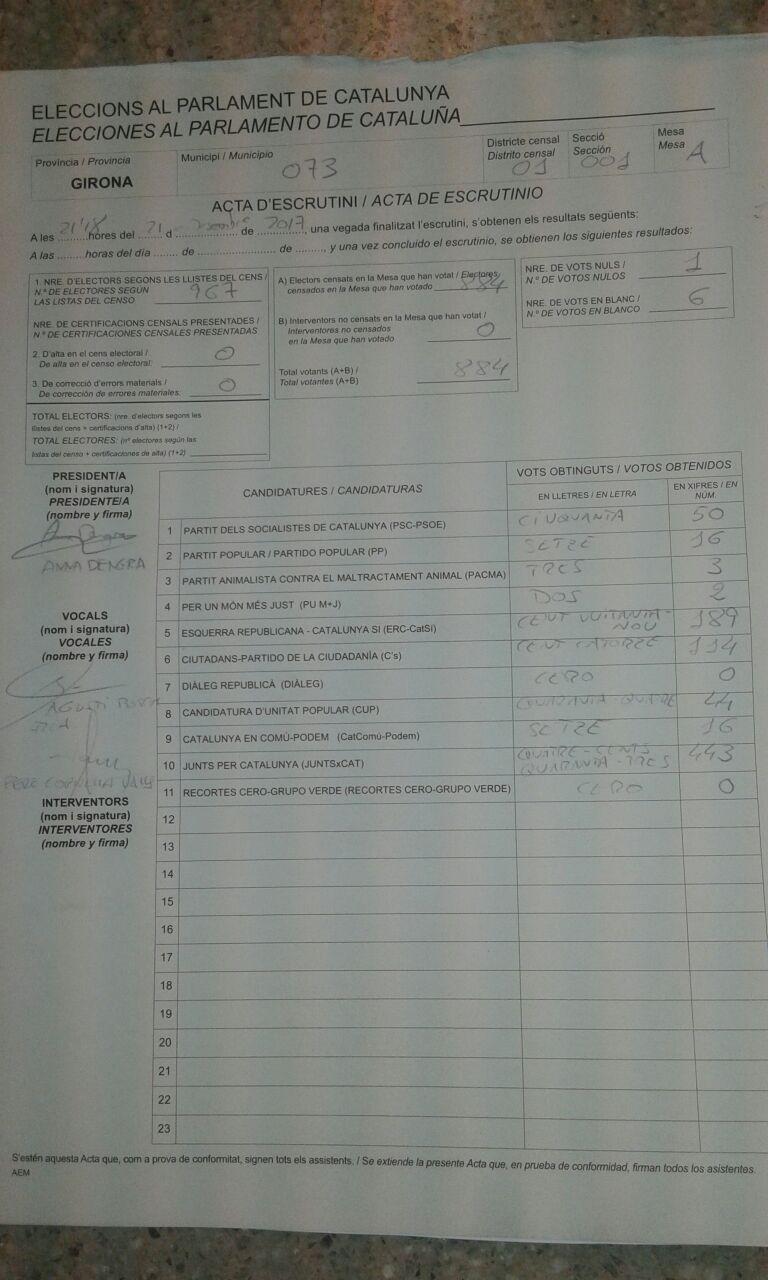 ELECCIONS AL PARLAMENT DE CATALUNYA
ELECCIONES AL PARLAMENTO DE CATALUÑA
Provincia / Provincia
GIRONA
Municipi / Municipio
073
Districte censal
Distrito censal
01
Secció
Sección
001
Mesa
Mesa
A
ACTA D'ESCRUTINI / ACTA DE ESCRUTINIO
A les 21'18 hores del 21 d desembre de 2017, una vegada finalitzat l'escrutini, s'obtenen els resultats següents:
A las ........horas del día ...... de ........................ de ........, y una vez concluido el escrutinio, se obtienen los siguientes resultados:
1. NRE. D'ELECTORS SEGONS LES LLISTES DEL CENS /
N.º DE ELECTORES SEGÚN
LAS LISTAS DEL CENSO
967
NRE. DE CERTIFICACIONS CENSALS PRESENTADES /
N.º DE CERTIFICACIONES CENSALES PRESENTADAS
2. D'alta en el cens electoral /
De alta en el censo electoral: 0
3. De correcció d'errors materials /
De corrección de errores materiales: 0
TOTAL ELECTORS: (nre. d'electors segons les
llistes del cens + certificacions d'alta) (1+2) /
TOTAL ELECTORES: (nº electores según las
listas del censo + certificaciones de alta) (1+2)
A) Electors censats en la Mesa que han votat / Electores
censados en la Mesa que han votado 884
B) Interventors no censats en la Mesa que han votat /
Interventores no censados
en la Mesa que han votado 0
Total votants (A+B) /
Total votantes (A+B) 884
NRE. DE VOTS NULS /
N.º DE VOTOS NULOS 1
NRE. DE VOTS EN BLANC /
N.º DE VOTOS EN BLANCO 6
PRESIDENT/A
(nom i signatura)
PRESIDENTE/A
(nombre y firma)
ANNA DENGRA
VOCALS
(nom i signatura)
VOCALES
(nombre y firma)
AGUSTÍ
PERE
INTERVENTORS
(nom i signatura)
INTERVENTORES
(nombre y firma)
CANDIDATURES / CANDIDATURAS
VOTS OBTINGUTS / VOTOS OBTENIDOS
EN LLETRES / EN LETRA
EN XIFRES / EN NÚM.
1 PARTIT DELS SOCIALISTES DE CATALUNYA (PSC-PSOE) CINQUANTA 50
2 PARTIT POPULAR / PARTIDO POPULAR (PP) SETZE 16
3 PARTIT ANIMALISTA CONTRA EL MALTRACTAMENT ANIMAL (PACMA) TRES 3
4 PER UN MÓN MÉS JUST (PU M+J) DOS 2
5 ESQUERRA REPUBLICANA - CATALUNYA SI (ERC-CatSí) CENT VUITANTA-NOU 189
6 CIUTADANS-PARTIDO DE LA CIUDADANÍA (C's) CENT CATORZE 114
7 DIÀLEG REPUBLICÀ (DIÀLEG) CERO 0
8 CANDIDATURA D'UNITAT POPULAR (CUP) QUARANTA-QUATRE 44
9 CATALUNYA EN COMÚ-PODEM (CatComú-Podem) SETZE 16
10 JUNTS PER CATALUNYA (JUNTSxCAT) QUATRE-CENTS QUARANTA-TRES 443
11 RECORTES CERO-GRUPO VERDE (RECORTES CERO-GRUPO VERDE) CERO 0
12
13
14
15
16
17
18
19
20
21
22
23
S'estén aquesta Acta que, com a prova de conformitat, signen tots els assistents. / Se extiende la presente Acta que, en prueba de conformidad, firman todos los asistentes.
AEM